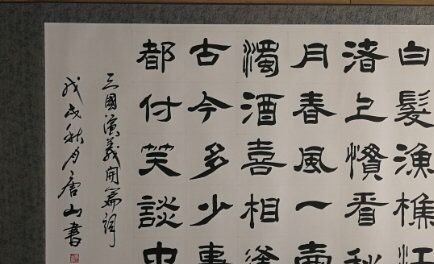 白髮漁樵江
渚上慣看秋
月春風一壺
濁酒喜相逢
古今多少事
都付笑談中
三國演義開篇詞
戊戌秋月唐山書